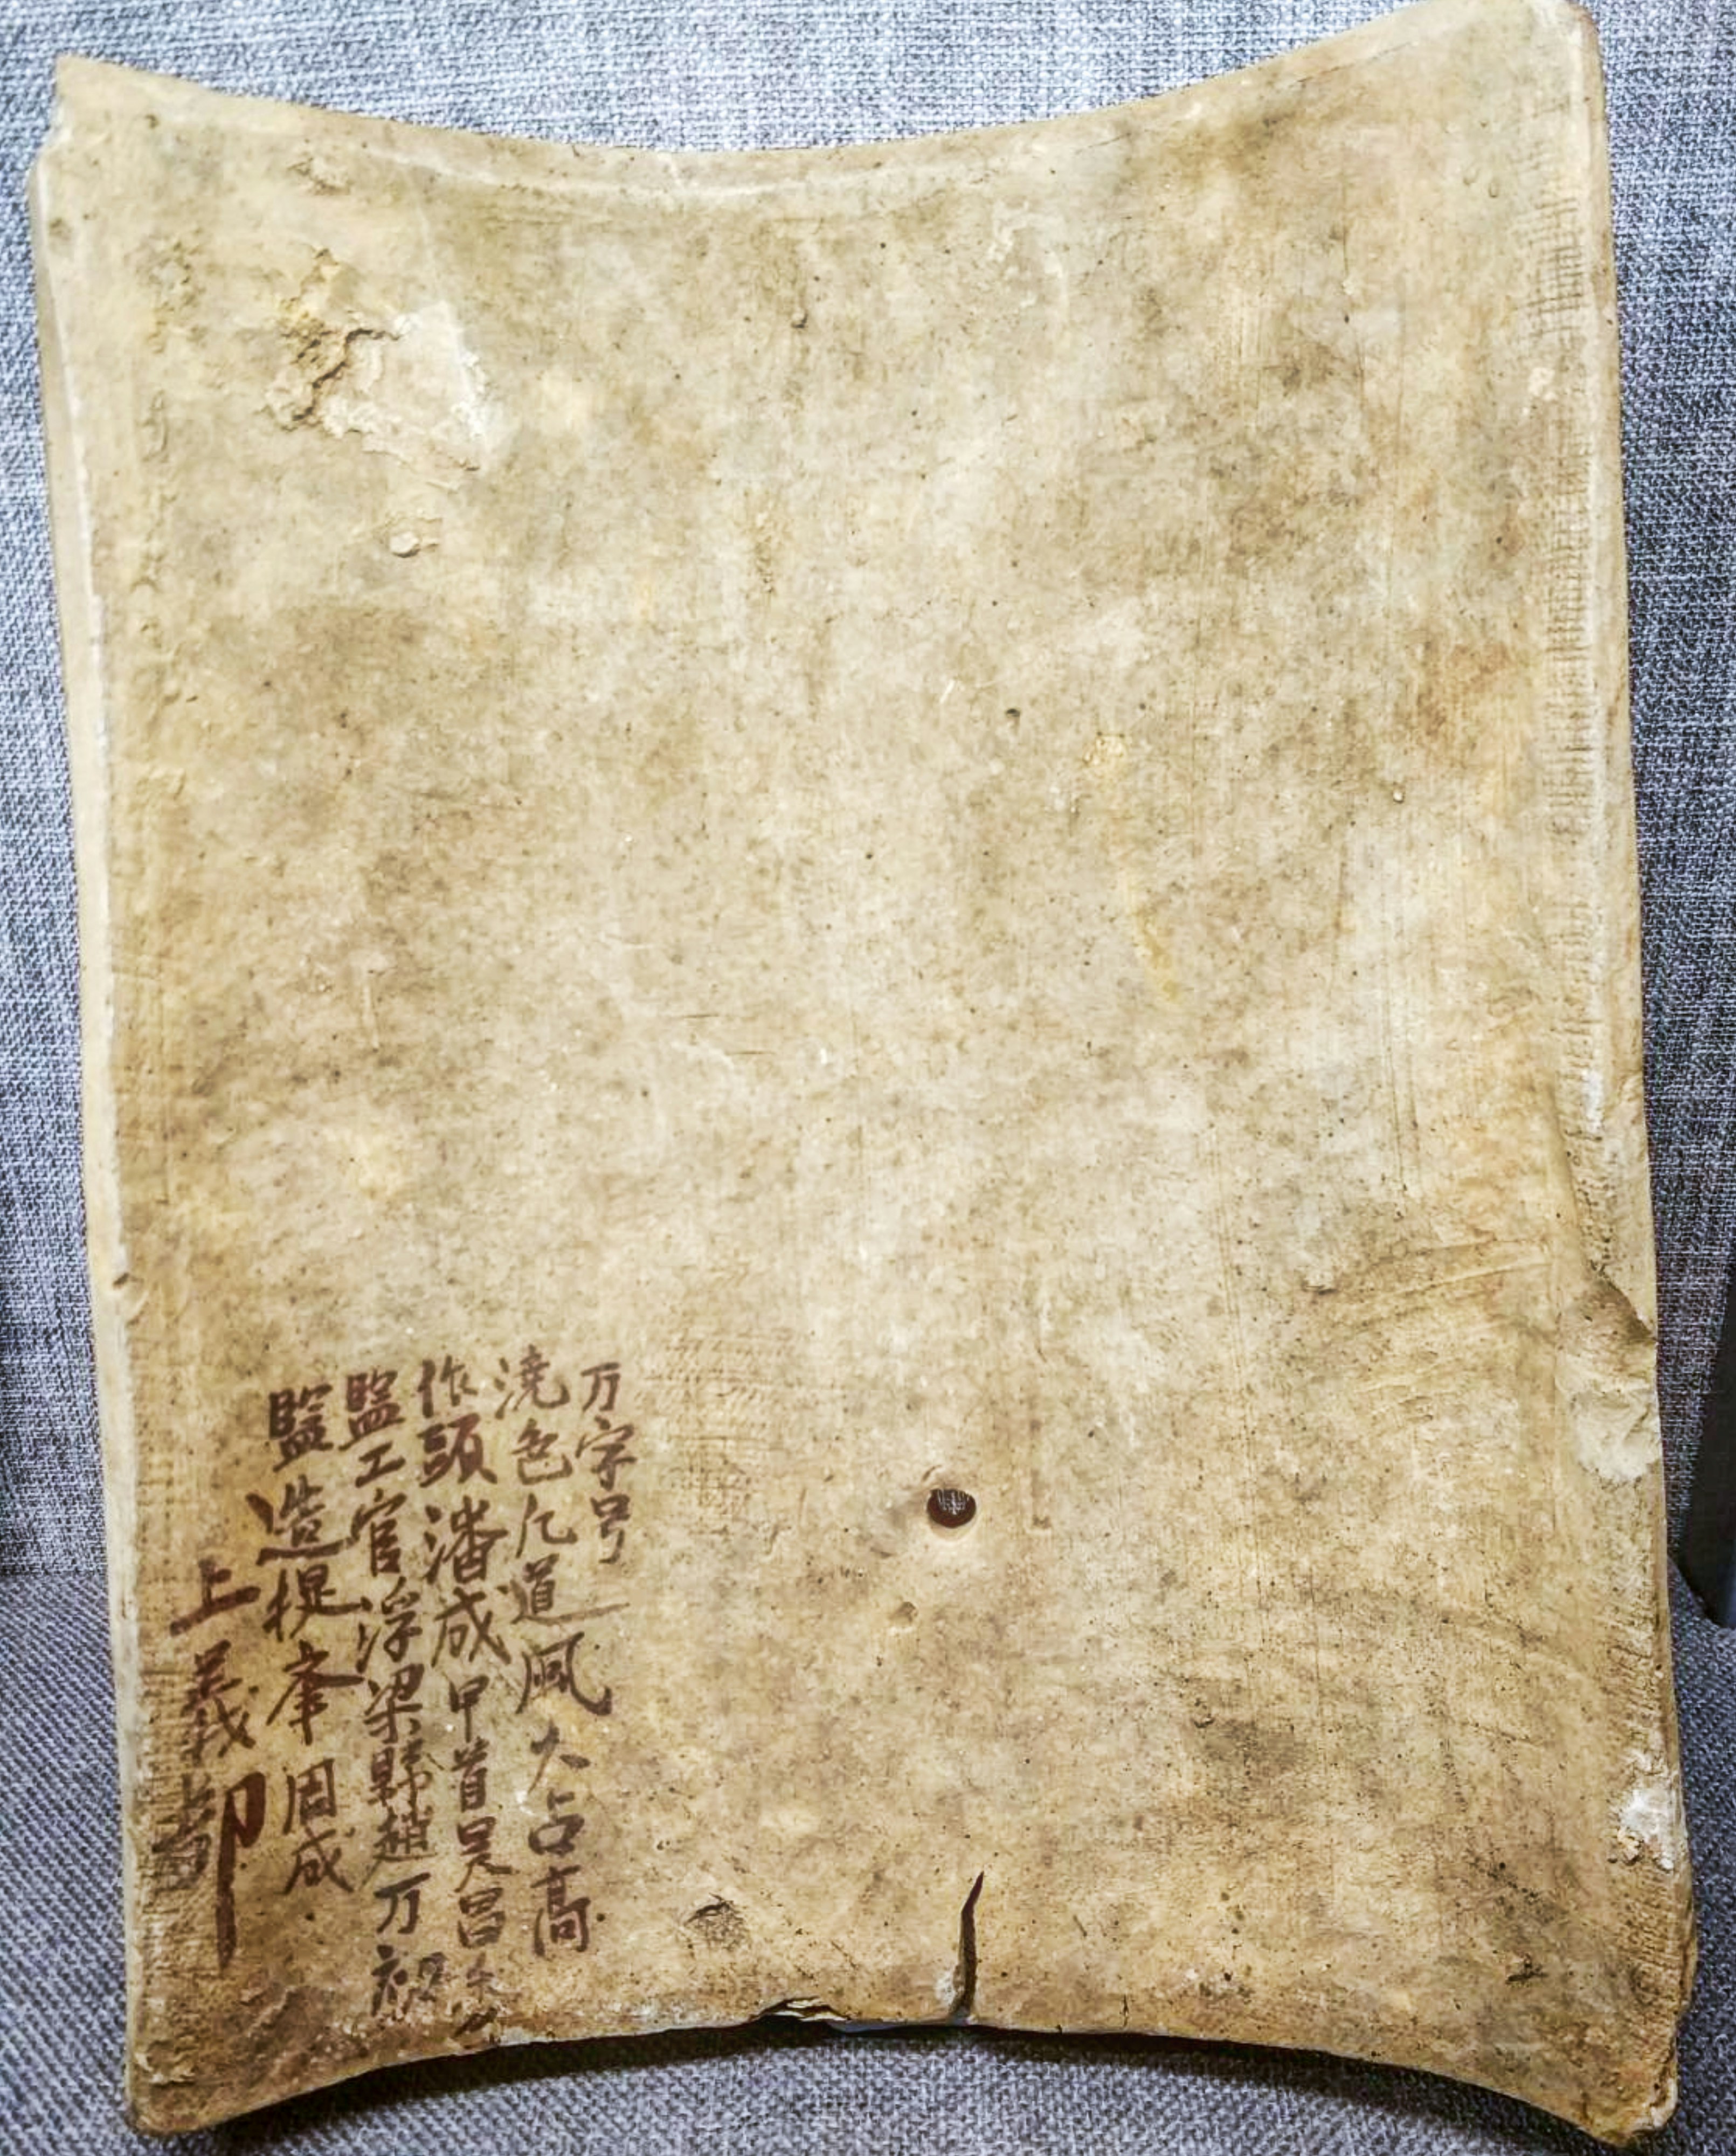 万字号
澆色匠道風人占高
作頭潘成甲首吴昌
監工官浮梁縣趙万初
監造提舉周成
上義都